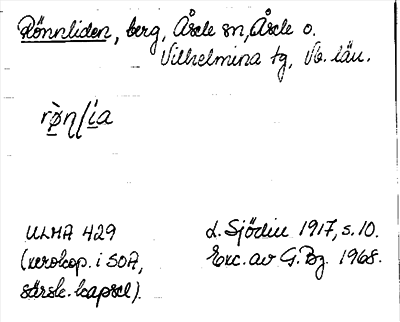 Rönnliden, berg, Åsele sn, Åsele o.
Vilhelmina tg, Vb. län.
rø̀nḷía
ULMA 429
(xerokop. i SOA,
särsk. kapsel).
D. Sjödin 1917, s. 10.
Exc. av G. Bg. 1968.